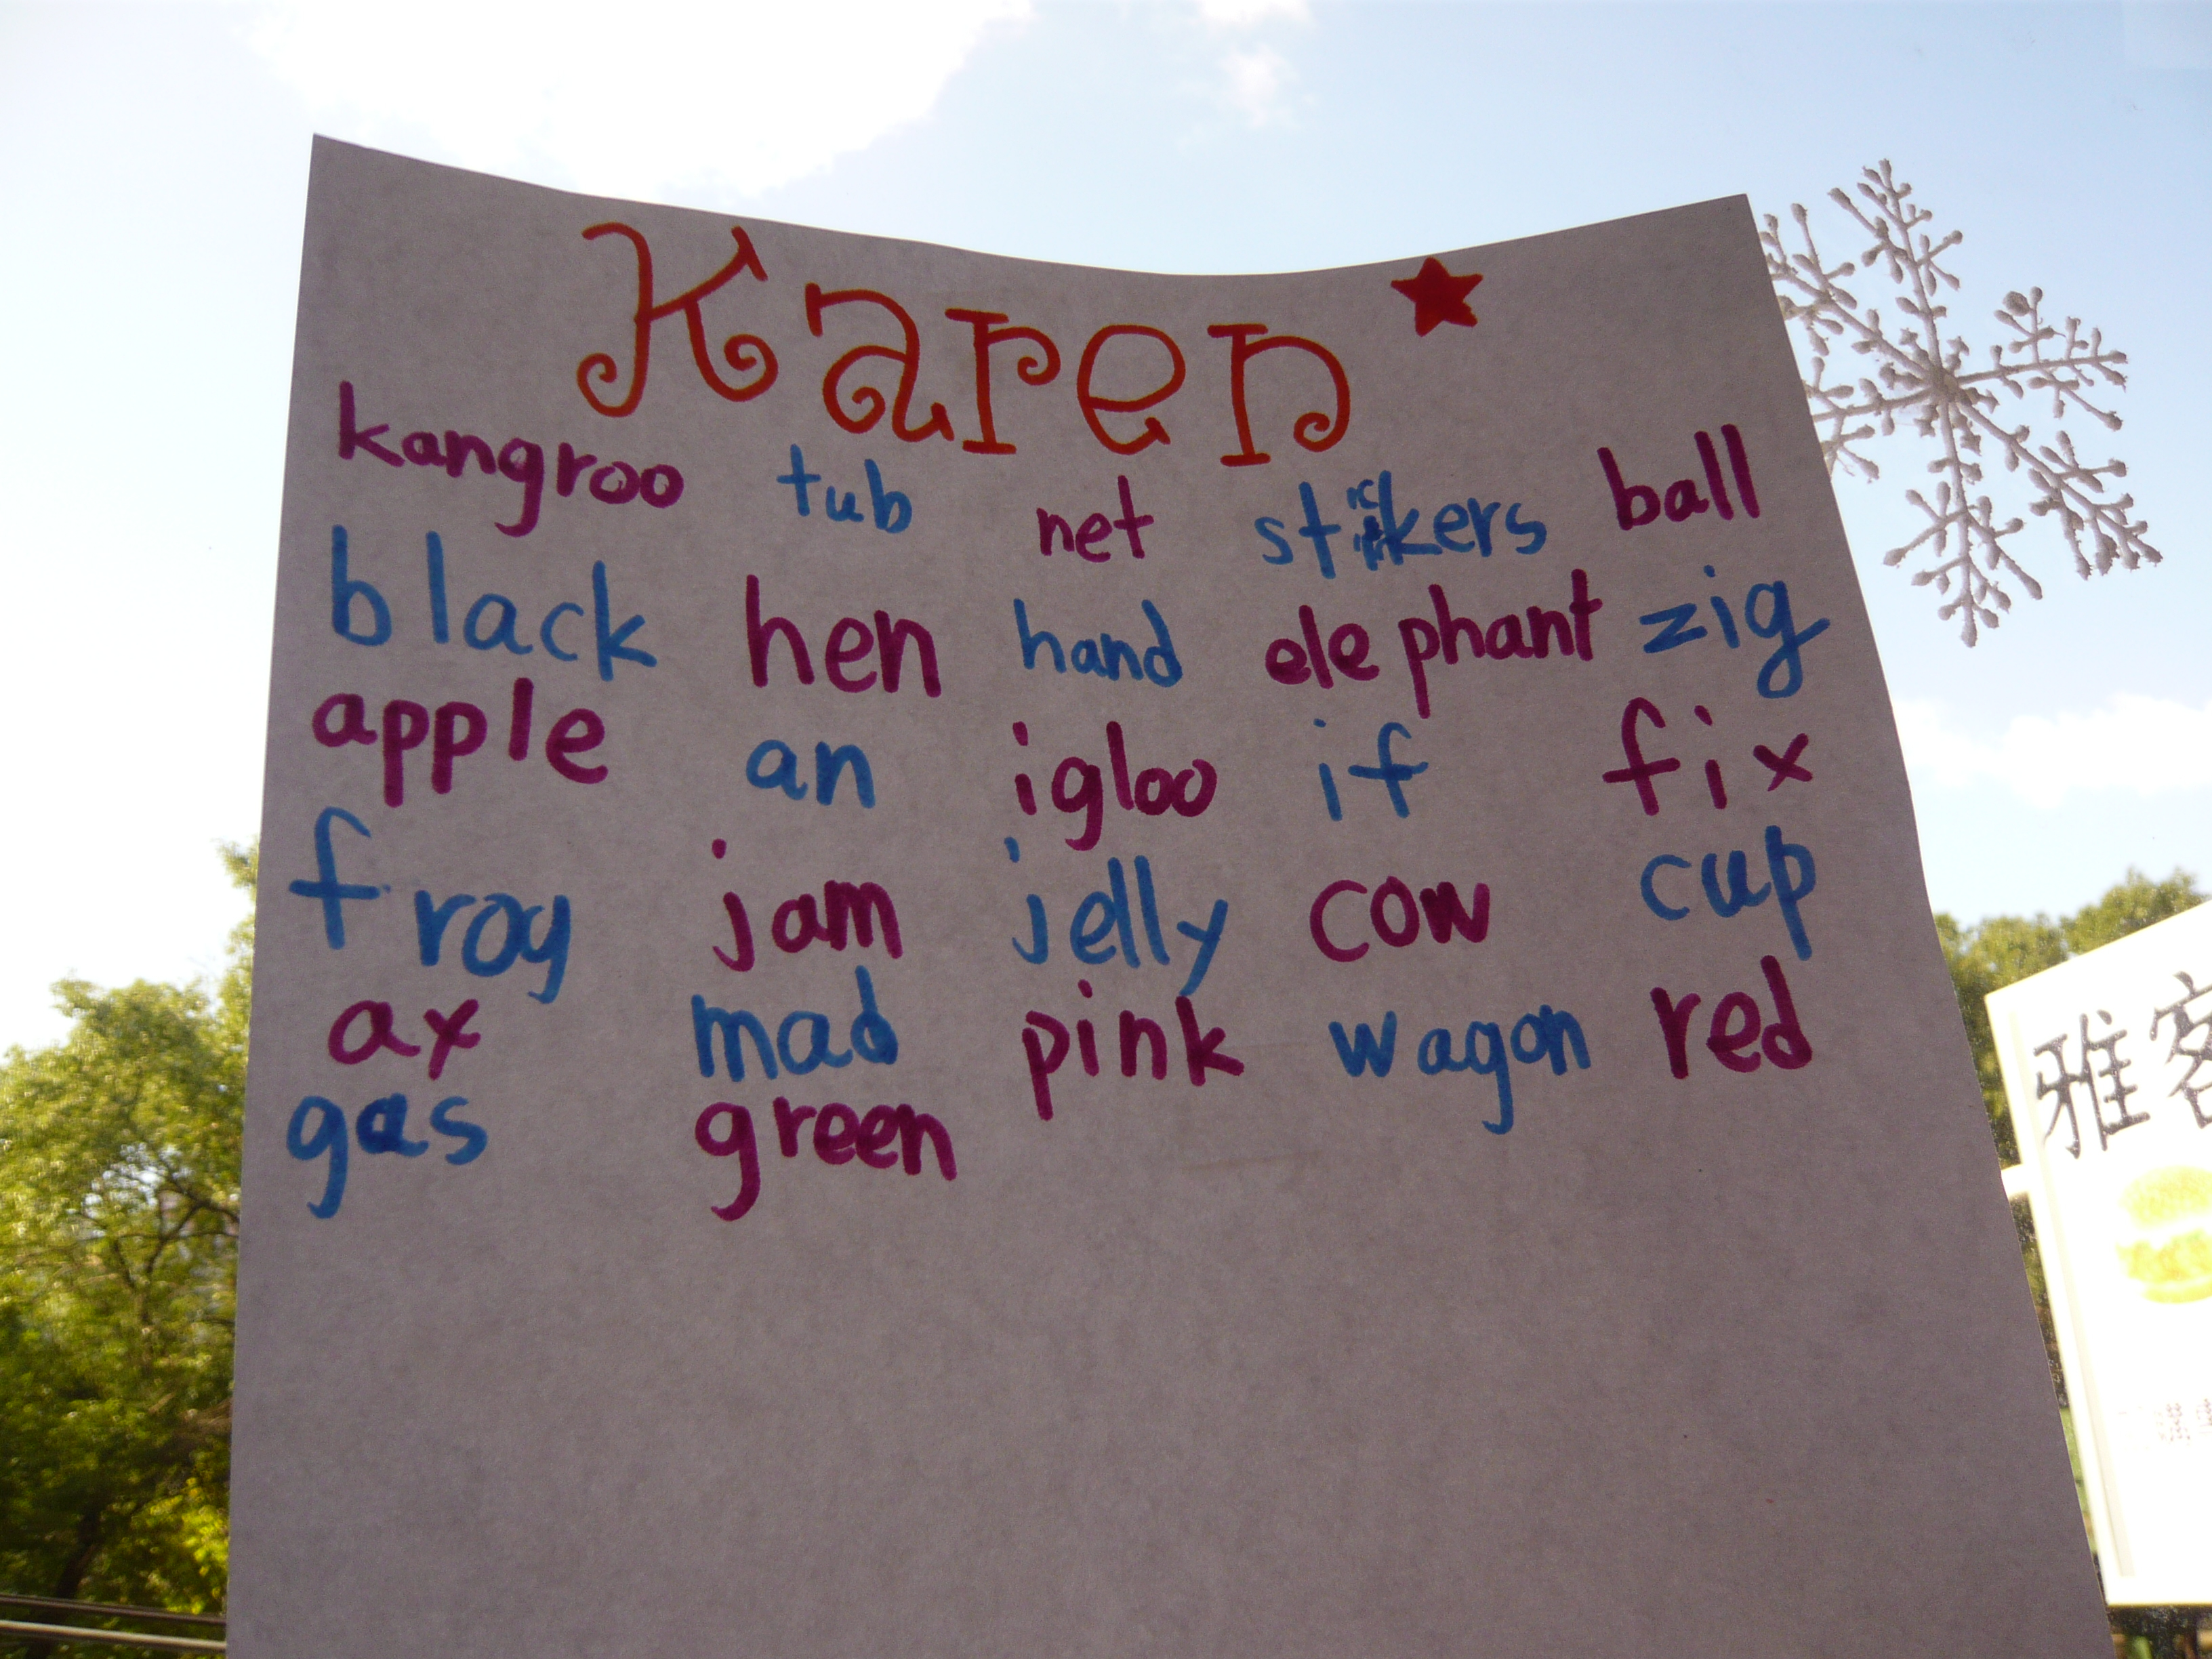 Karen
kangroo tub net stickers ball
black hen hand elephant zig
apple an igloo if fix
frog jam jelly cow cup
ax mad pink wagon red
gas green
雅客